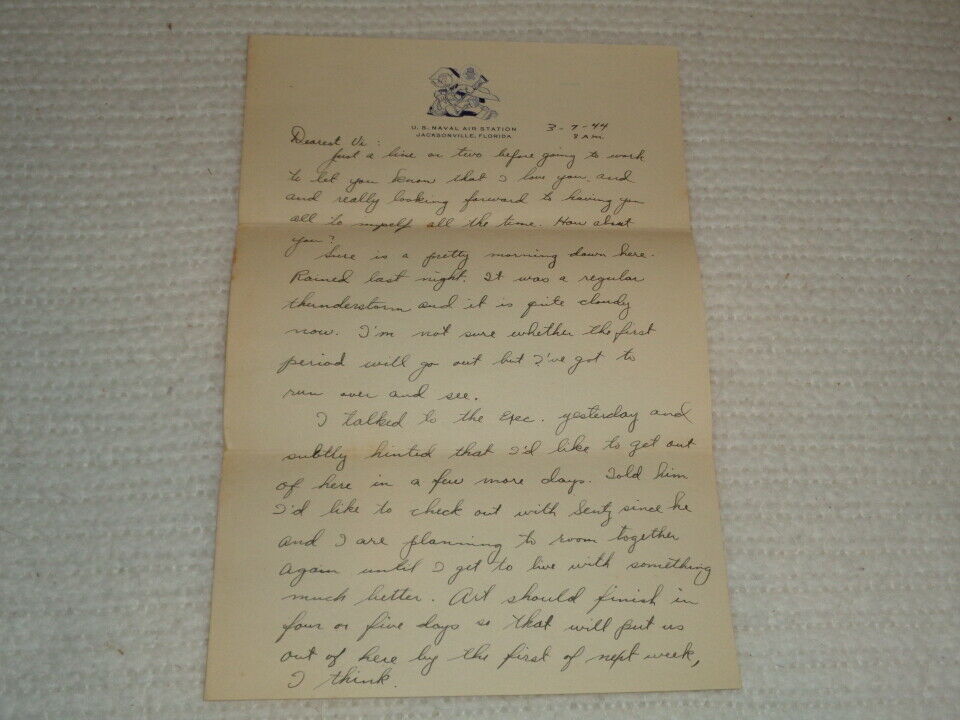 U. S. NAVAL AIR STATION
JACKSONVILLE, FLORIDA
3-7-44
8 AM.
Dearest Vi:
Just a line or two before going to work
to let you know that I love you and
and really looking forward to having you
all to myself all the time. How about
you?
Sure is a pretty morning down here.
Rained last night. It was a regular
thunderstorm and it is quite cloudy
now. I'm not sure whether the first
period will go out but I've got to
run over and see.
I talked to the Exec. yesterday and
subtly hinted that I'd like to get out
of here in a few more days. Told him
I'd like to check out with Sentz since he
and I are planning to room together
again until I get to live with something
much better. Art should finish in
four or five days so that will put us
out of here by the first of next week,
I think.